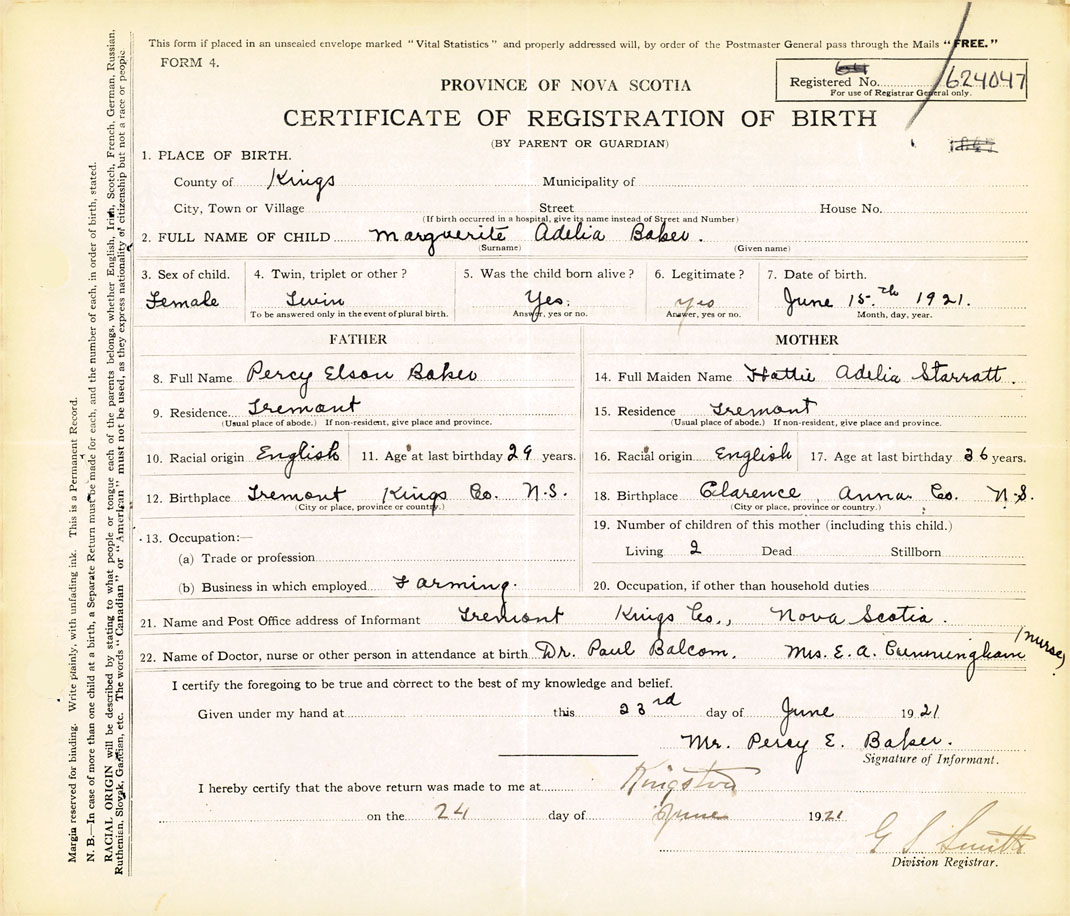 This form if placed in an unsealed envelope marked "Vital Statistics" and properly addressed will, by order of the Postmaster General pass through the Mails "FREE."
FORM 4.
Registered No. 624047
For use of Registrar General only.
PROVINCE OF NOVA SCOTIA
CERTIFICATE OF REGISTRATION OF BIRTH
(BY PARENT OR GUARDIAN)
1. PLACE OF BIRTH.
County of Kings Municipality of
City, Town or Village Street House No.
(If birth occurred in a hospital, give its name instead of Street and Number)
2. FULL NAME OF CHILD Marguerite Adelia Baker.
(Surname) (Given name)
3. Sex of child. 4. Twin, triplet or other? 5. Was the child born alive? 6. Legitimate? 7. Date of birth.
Female Twin Yes. yes June 15th 1921.
To be answered only in the event of plural birth. Answer, yes or no. Answer, yes or no. Month, day, year.
FATHER MOTHER
8. Full Name Percy Elson Baker 14. Full Maiden Name Hattie Adelia Starratt.
9. Residence Tremont 15. Residence Tremont
(Usual place of abode.) If non-resident, give place and province. (Usual place of abode.) If non-resident, give place and province.
10. Racial origin English 11. Age at last birthday 29 years. 16. Racial origin English 17. Age at last birthday 36 years.
12. Birthplace Tremont Kings Co. N.S. 18. Birthplace Clarence, Anna. Co. N.S.
(City or place, province or country.) (City or place, province or country.)
13. Occupation:— 19. Number of children of this mother (including this child.)
(a) Trade or profession Living 2 Dead Stillborn
(b) Business in which employed Farming. 20. Occupation, if other than household duties
21. Name and Post Office address of Informant Tremont Kings Co., Nova Scotia.
22. Name of Doctor, nurse or other person in attendance at birth Dr. Paul Balcom. Mrs. E. A. Cunningham (nurse)
I certify the foregoing to be true and correct to the best of my knowledge and belief.
Given under my hand at this 23rd day of June 1921
Mr. Percy E. Baker.
Signature of Informant.
I hereby certify that the above return was made to me at Kingston
on the 24 day of June 1921
G S Smith
Division Registrar.
Margin reserved for binding. Write plainly, with unfading ink. This is a Permanent Record.
N. B.—In case of more than one child at a birth, a Separate Return must be made for each, and the number of each, in order of birth, stated.
RACIAL ORIGIN will be described by stating to what people or tongue each of the parents belongs, whether English, Irish, Scotch, French, German, Russian,
Ruthenian, Slovak, Galician, etc. The words "Canadian" or "American" must not be used, as they express nationality or citizenship but not a race or people